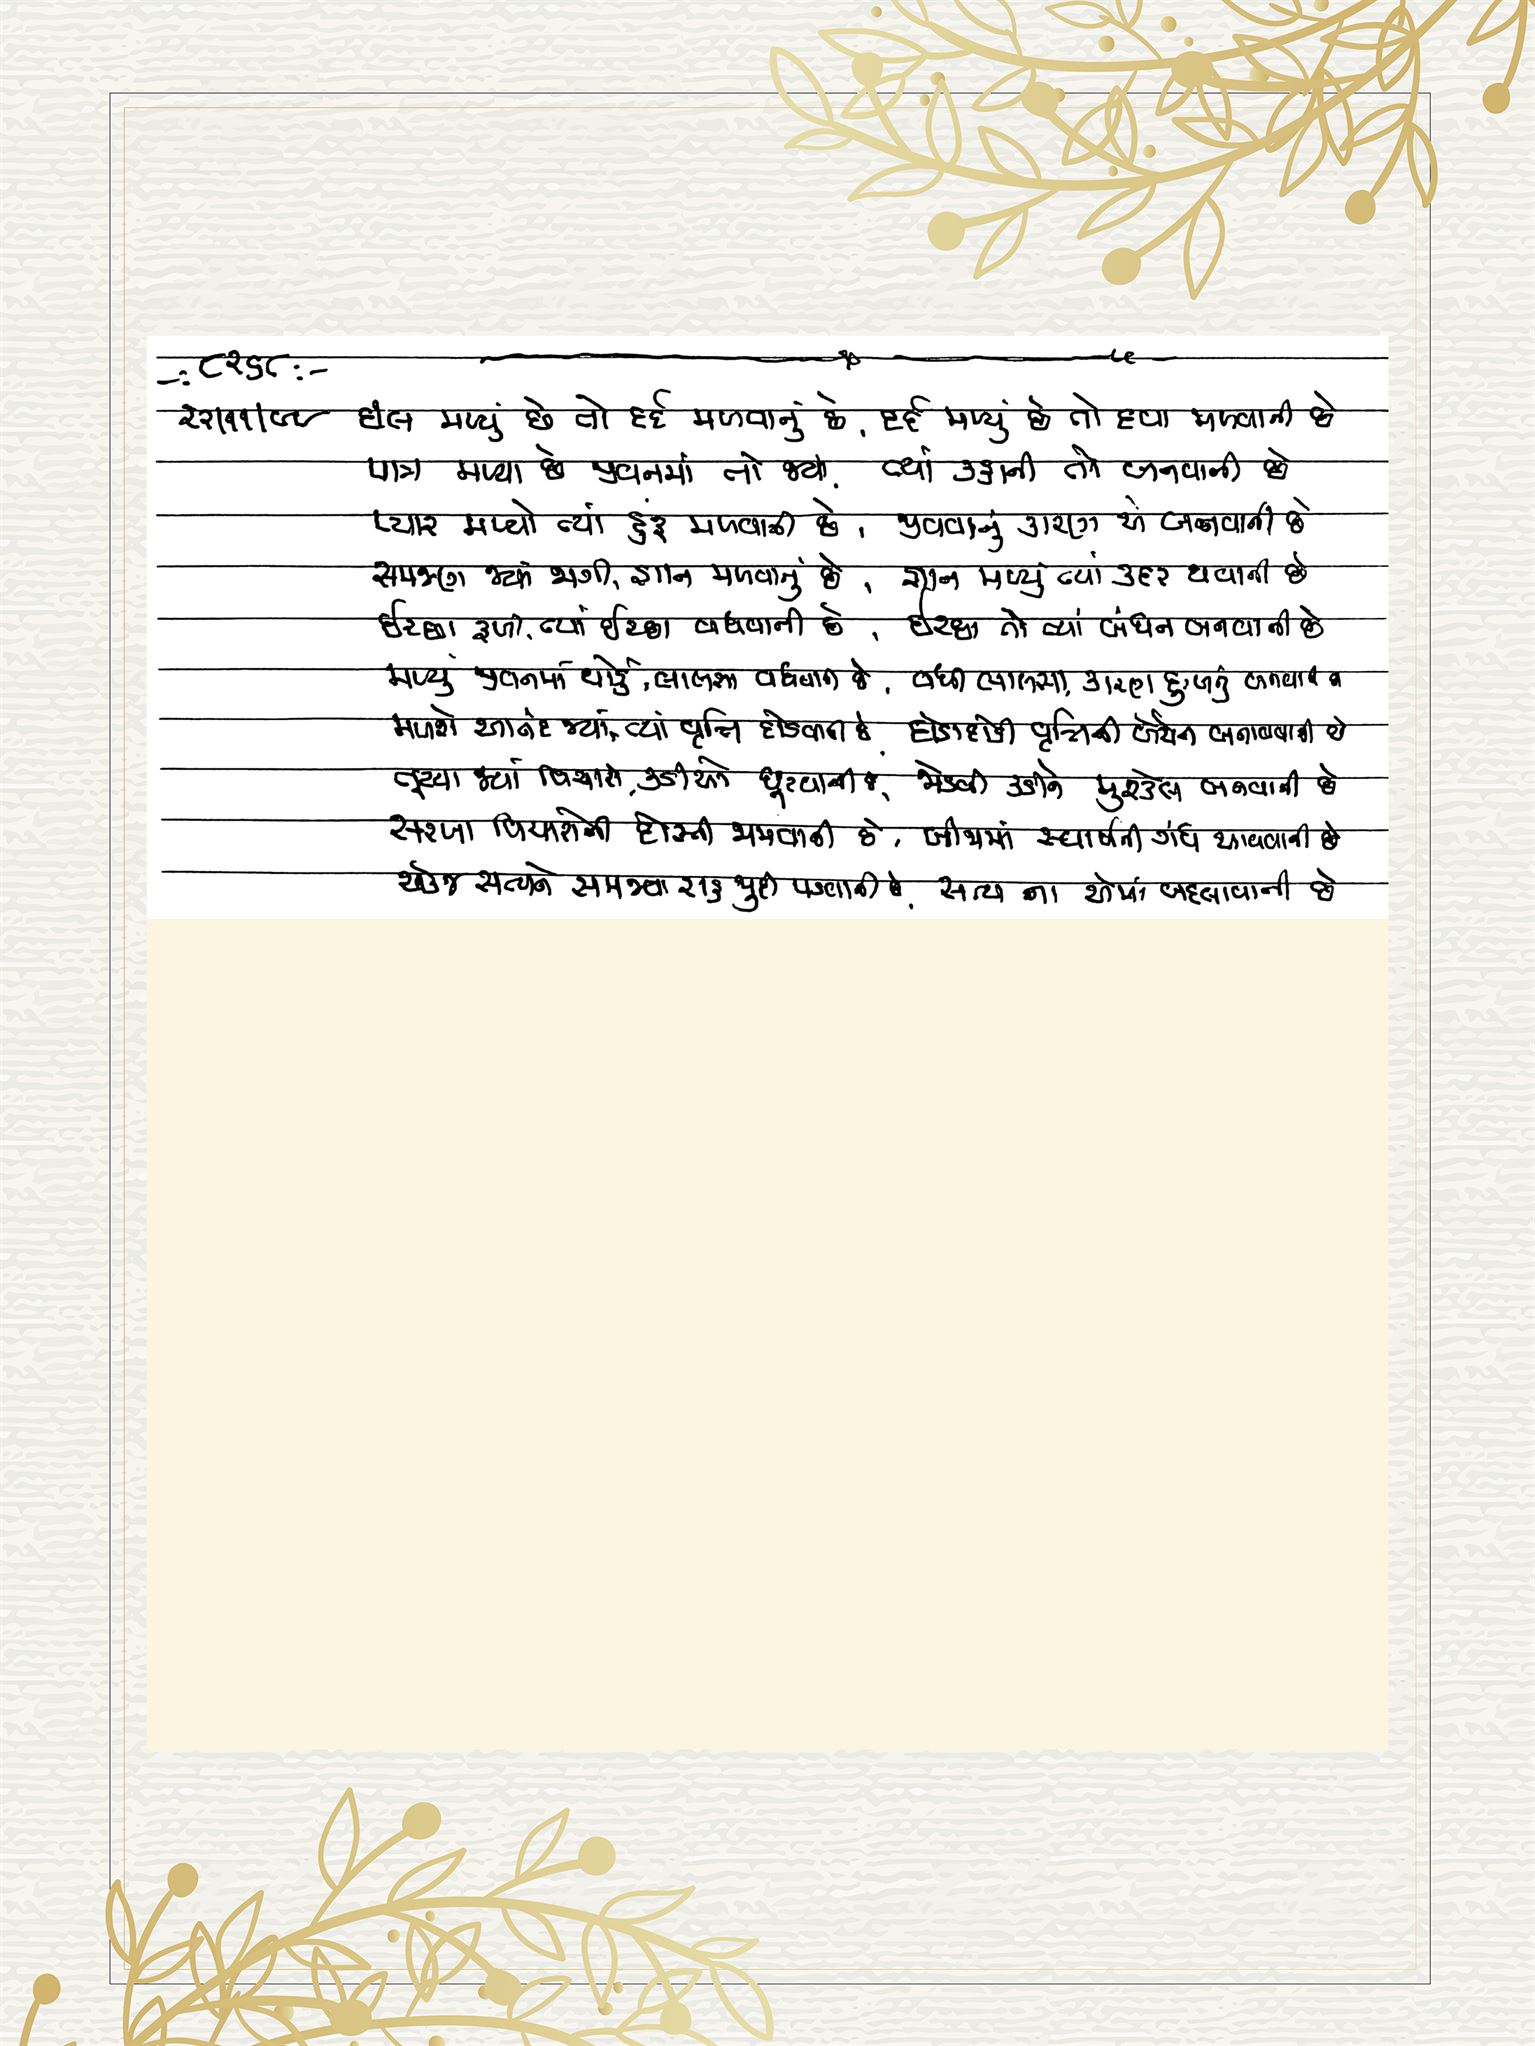 -: ૮૨૬૮ :-
૨૨/૧૧/૯૯ દીલ મળ્યું છે તો દર્દ મળવાનું છે, દર્દ મળ્યું છે તો દવા મળવાની છે
પાત્ર મળ્યા છે જીવનમાં તો જ્યાં, ત્યાં કહાની તો બનવાની છે
પ્યાર મળ્યો ત્યાં હુંફ મળવાની છે, જીવવાનું કારણ એ બનવાની છે
સમજણ જ્યાં જાગી, જ્ઞાન મળવાનું છે, જ્ઞાન મળ્યું ત્યાં કદર થવાની છે
ઈચ્છા ફળી, ત્યાં ઈચ્છા વધવાની છે, ઈચ્છા તો ત્યાં બંધન બનવાની છે
મળ્યું જીવનમાં થોડું, લાલસા વધવાની છે, વધી લાલસા, કારણ દુઃખનું બનવાની છે
મળશે આનંદ જ્યાં, ત્યાં વૃત્તિ દોડવાની છે, દોડાદોડી વૃત્તિની બેચેન બનાવવાની છે
જૂદા જ્યાં વિચારો, કડી એને પૂરવાની છે, મેળવી કડીને મુશ્કેલ બનવાની છે
સરખા વિચારોની દોસ્તી જામવાની છે, વચમાં સ્વાર્થની ગંધ આવવાની છે
એકજ સત્યને સમજવા રાહ જુદી પડવાની છે, સત્ય ના એમાં બદલાવાની છે